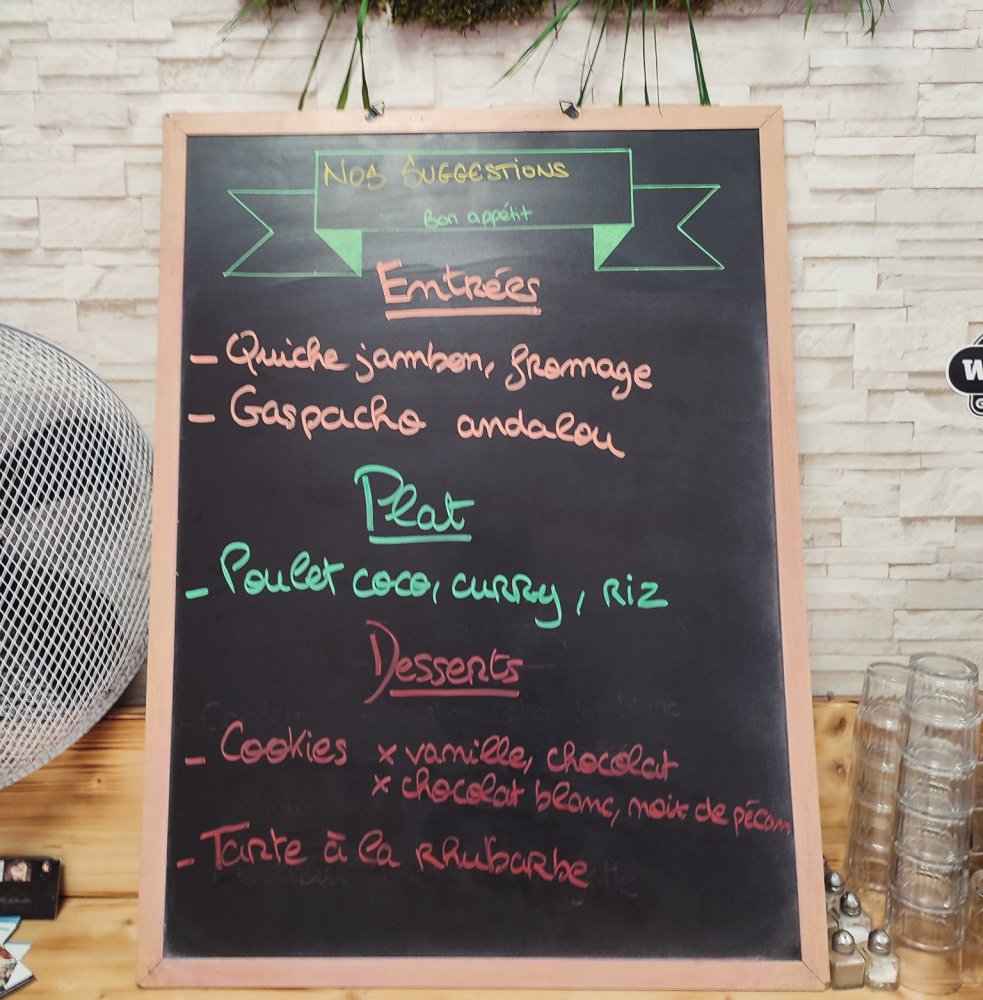 Nos Suggestions
Bon appétit
Entrées
- Quiche jambon, fromage
- Gaspacho andalou
Plat
- Poulet coco, curry, riz
Desserts
- Cookies x vanille, chocolat
x chocolat blanc, noix de pécan
- Tarte à la rhubarbe
W